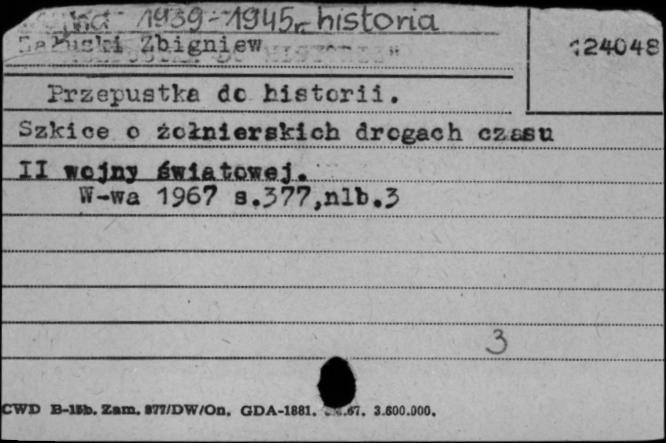 1939-1945r. historia
Załuski Zbigniew
124048
Przepustka do historii.
Szkice o żołnierskich drogach czasu
II wojny światowej.
W-wa 1967 s.377,nlb.3
3
CWD B-15b. Zam. 877/DW/On. GDA-1881. .67. 3.600.000.